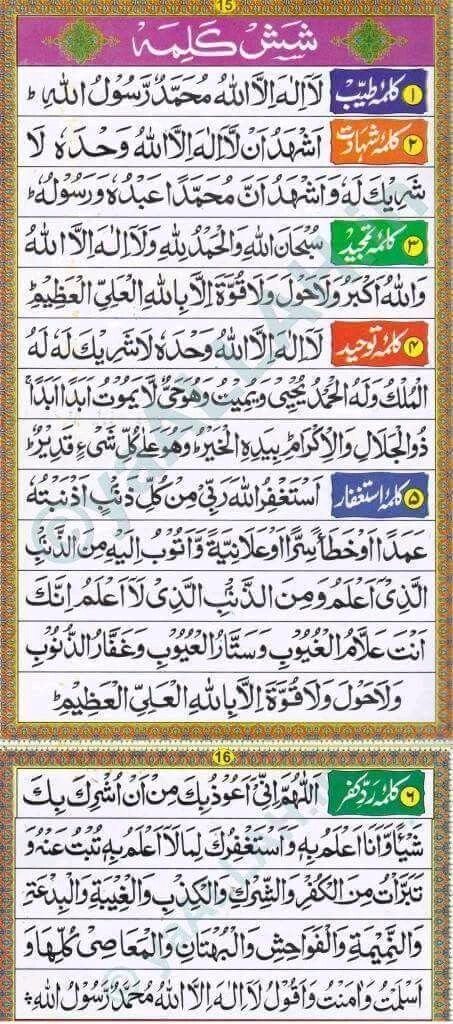 15
شش کلمه
۱ کلمۂ طیّب لَآ اِلٰهَ اِلَّا اللّٰهُ مُحَمَّدٌ رَّسُوْلُ اللّٰهِ ؕ
۲ کلمۂ شہادت اَشْهَدُ اَنْ لَّآ اِلٰهَ اِلَّا اللّٰهُ وَحْدَهٗ لَا
شَرِيْكَ لَهٗ وَاَشْهَدُ اَنَّ مُحَمَّدًا عَبْدُهٗ وَرَسُوْلُهٗ ؕ
۳ کلمۂ تمجید سُبْحَانَ اللّٰهِ وَالْحَمْدُ لِلّٰهِ وَلَآ اِلٰهَ اِلَّا اللّٰهُ
وَاللّٰهُ اَكْبَرُ وَلَاحَوْلَ وَلَا قُوَّةَ اِلَّا بِاللّٰهِ الْعَلِيِّ الْعَظِيْمِ ؕ
۴ کلمۂ توحید لَآ اِلٰهَ اِلَّا اللّٰهُ وَحْدَهٗ لَا شَرِيْكَ لَهٗ لَهُ
الْمُلْكُ وَلَهُ الْحَمْدُ يُحْيِیْ وَيُمِيْتُ وَهُوَ حَیٌّ لَّا يَمُوْتُ اَبَدًا اَبَدًا ؕ
ذُو الْجَلَالِ وَالْاِكْرَامِ ؕ بِيَدِهِ الْخَيْرُ ؕ وَهُوَ عَلٰی كُلِّ شَیْءٍ قَدِيْرٌ ؕ
۵ کلمۂ استغفار اَسْتَغْفِرُ اللّٰهَ رَبِّیْ مِنْ كُلِّ ذَنْۢبٍ اَذْنَبْتُهٗ
عَمَدًا اَوْ خَطَأً سِرًّا اَوْ عَلَانِيَةً وَّاَتُوْبُ اِلَيْهِ مِنَ الذَّنْۢبِ
الَّذِیْ اَعْلَمُ وَمِنَ الذَّنْۢبِ الَّذِیْ لَآ اَعْلَمُ اِنَّكَ
اَنْتَ عَلَّامُ الْغُيُوْبِ وَسَتَّارُ الْعُيُوْبِ وَغَفَّارُ الذُّنُوْبِ
وَلَاحَوْلَ وَلَا قُوَّةَ اِلَّا بِاللّٰهِ الْعَلِيِّ الْعَظِيْمِ ؕ
16
۶ کلمۂ ردّ کفر اَللّٰهُمَّ اِنِّیْ اَعُوْذُ بِكَ مِنْ اَنْ اُشْرِكَ بِكَ
شَيْأً وَّاَنَا اَعْلَمُ بِهٖ وَاَسْتَغْفِرُكَ لِمَا لَآ اَعْلَمُ بِهٖ تُبْتُ عَنْهُ وَ
تَبَرَّأْتُ مِنَ الْكُفْرِ وَالشِّرْكِ وَالْكِذْبِ وَالْغِيْبَةِ وَالْبِدْعَةِ
وَالنَّمِيْمَةِ وَالْفَوَاحِشِ وَالْبُهْتَانِ وَالْمَعَاصِیْ كُلِّهَا وَ
اَسْلَمْتُ وَاٰمَنْتُ وَاَقُوْلُ لَآ اِلٰهَ اِلَّا اللّٰهُ مُحَمَّدٌ رَّسُوْلُ اللّٰهِ ؕ
©yaALLAH.in